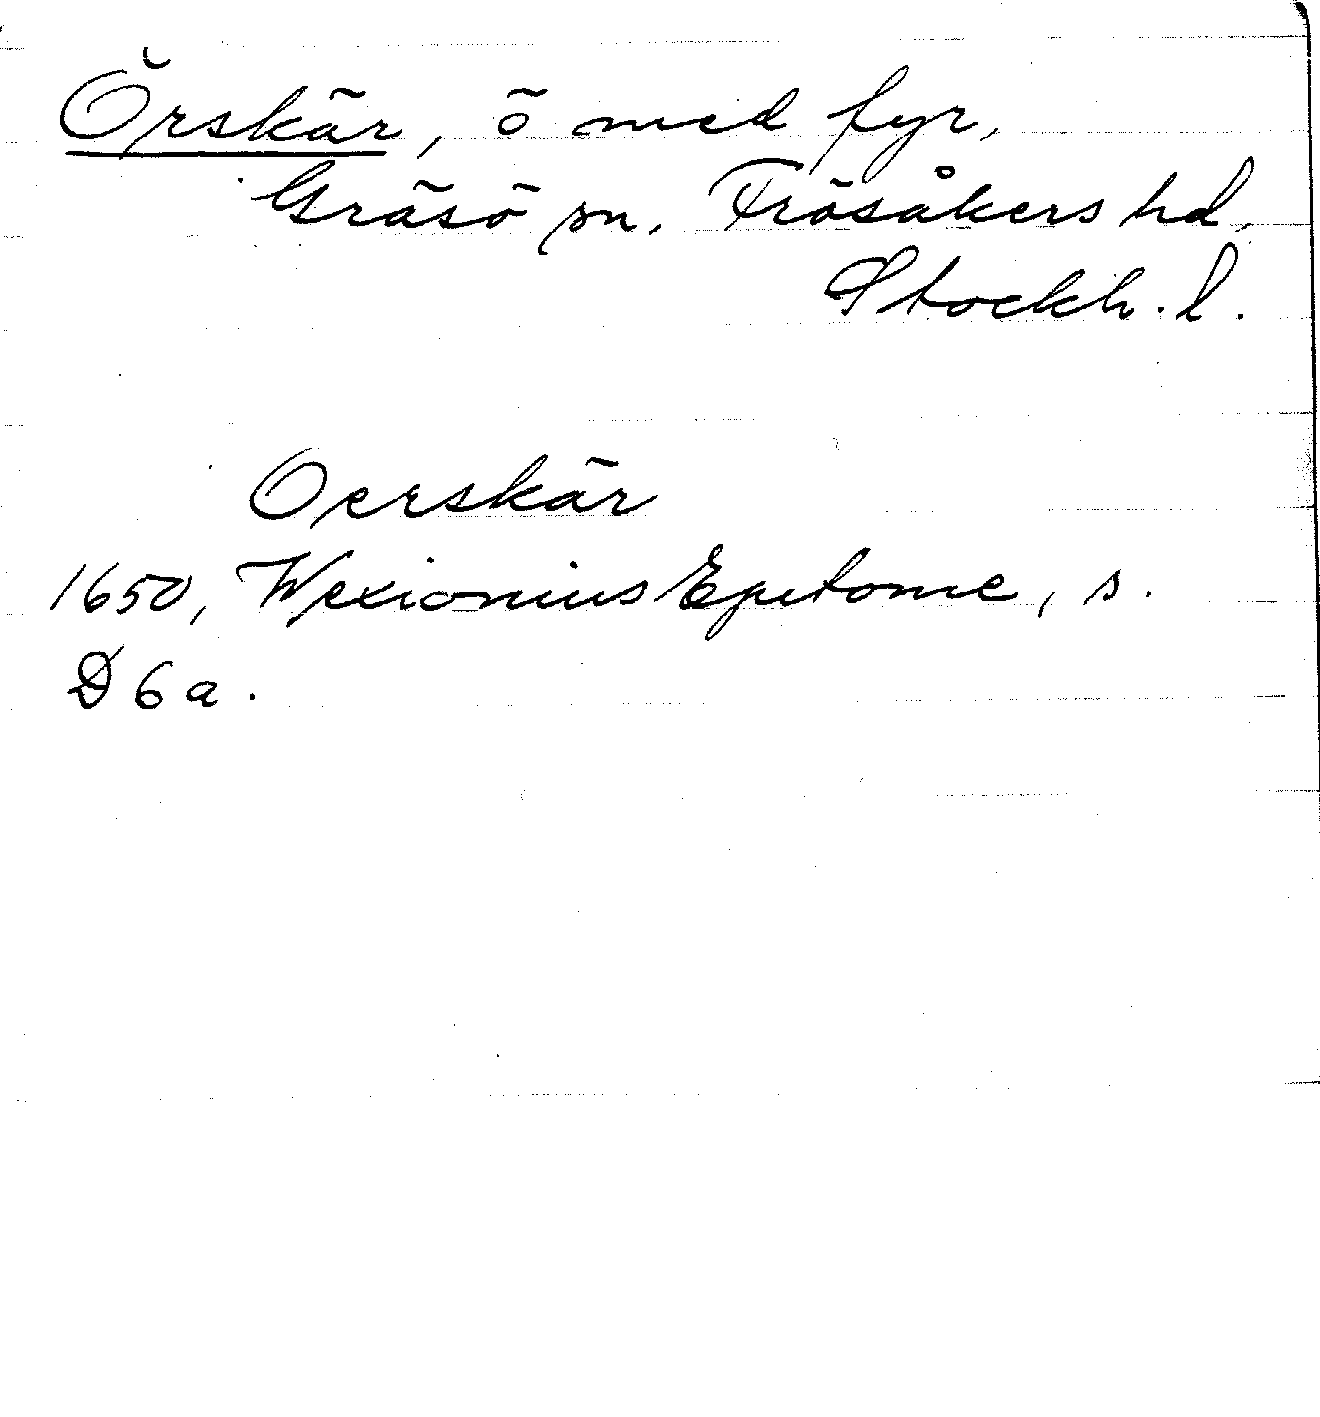 Örskär, ö med fyr,
Gräsö sn. Frösåkers hd,
Stockh. l.
Oerskär
1650, Wexionius Epitome, s.
D 6 a.